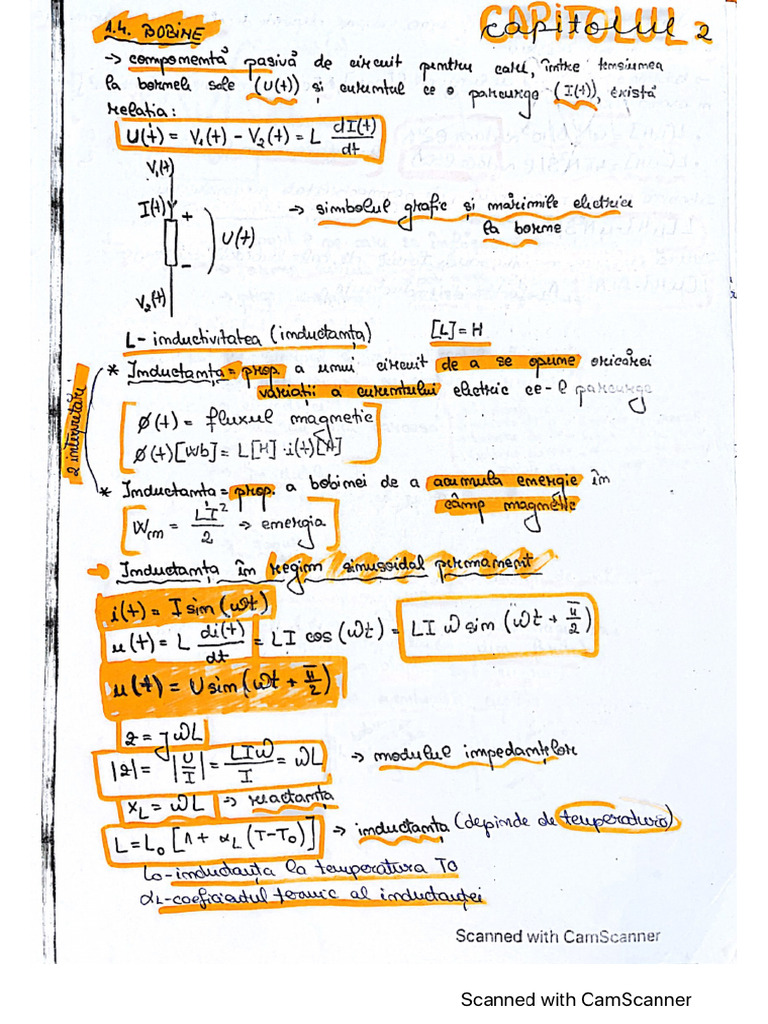 1.4. BOBINE
CAPITOLUL 2
capitolul
→ componentă pasivă de circuit pentru care, între tensiunea
la bornele sale (U(t)) și curentul ce o parcurge (I(t)), există
relația:
U(t) = V₁(t) - V₂(t) = L dI(t)/dt
V₁(t)
I(t) +
U(t)
-
V₂(t)
→ simbolul grafic și mărimile electrice
la borne
L - inductivitatea (inductanța) [L] = H
2 interpretări
* Inductanța = prop. a unui circuit de a se opune oricărei
variații a curentului electric ce-l parcurge
Ø(t) = fluxul magnetic
Ø(t)[Wb] = L[H] · i(t)[A]
* Inductanța = prop. a bobinei de a acumula energie în
câmp magnetic
Wm = LI²/2 → energia
→ Inductanța în regim sinusoidal permanent
i(t) = I sin(ωt)
u(t) = L di(t)/dt = LI cos(ωt) = LI ω sin(ωt + π/2)
u(t) = U sin(ωt + π/2)
z = jωL
|z| = |U/I| = LIω/I = ωL → modulul impedanțelor
XL = ωL → reactanța
L = L₀[1 + αL(T-T₀)] → inductanța (depinde de temperatură)
L₀ - inductanța la temperatura T0
αL - coeficientul termic al inductanței
Scanned with CamScanner
Scanned with CamScanner